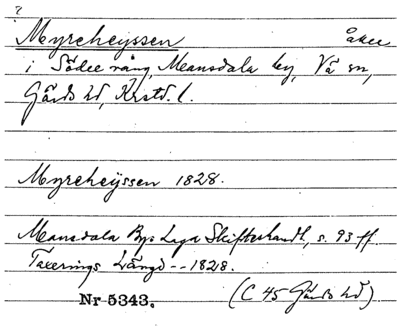 ?
Myrcheyssen åker
i Södre vång, Mansdala by, Vä sn,
Gärds hd, Krstd. l.
Myrcheÿssen 1828.
Mansdala Bys Laga Skifteshandl., s. 93 ff
Taxerings Längd -- 1828.
Nr 5343. (C 45 Gärds hd)